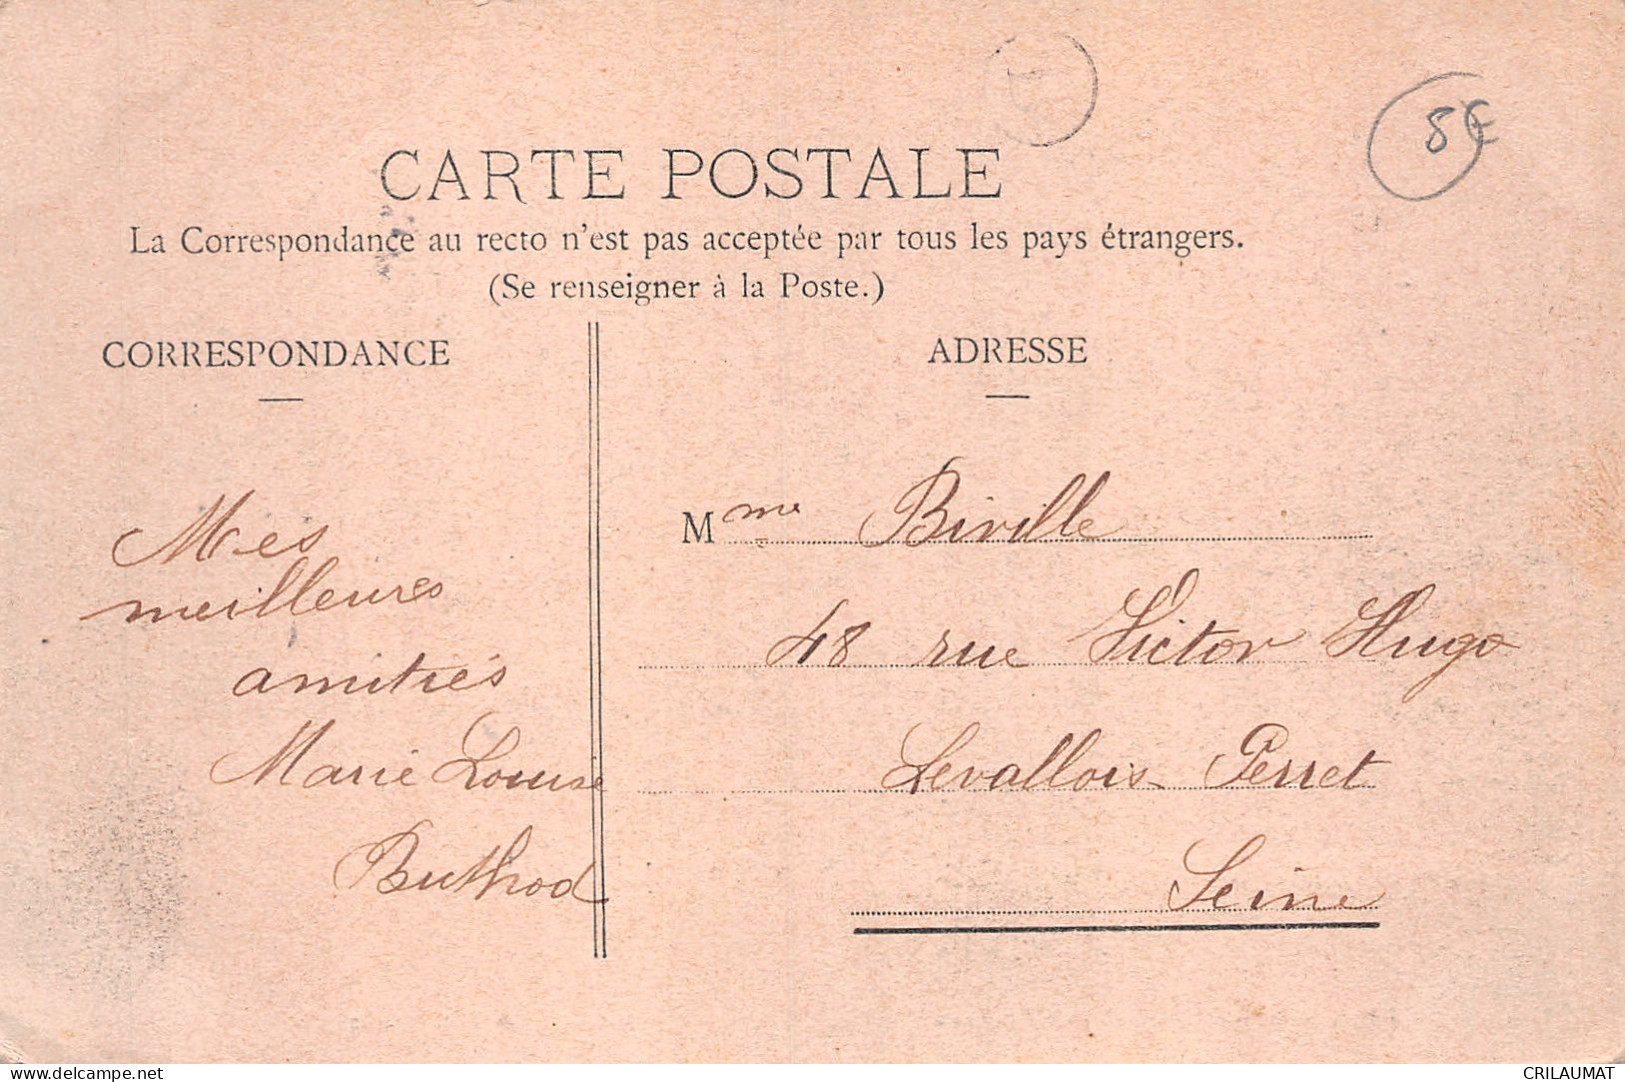 8€
CARTE POSTALE
La Correspondance au recto n'est pas acceptée par tous les pays étrangers.
(Se renseigner à la Poste.)
CORRESPONDANCE
Mes
meilleures
amitiés
Marie Louise
Buthod
ADRESSE
Mme Biville
48 rue Victor Hugo
Levallois Perret
Seine
www.delcampe.net
CRILAUMAT